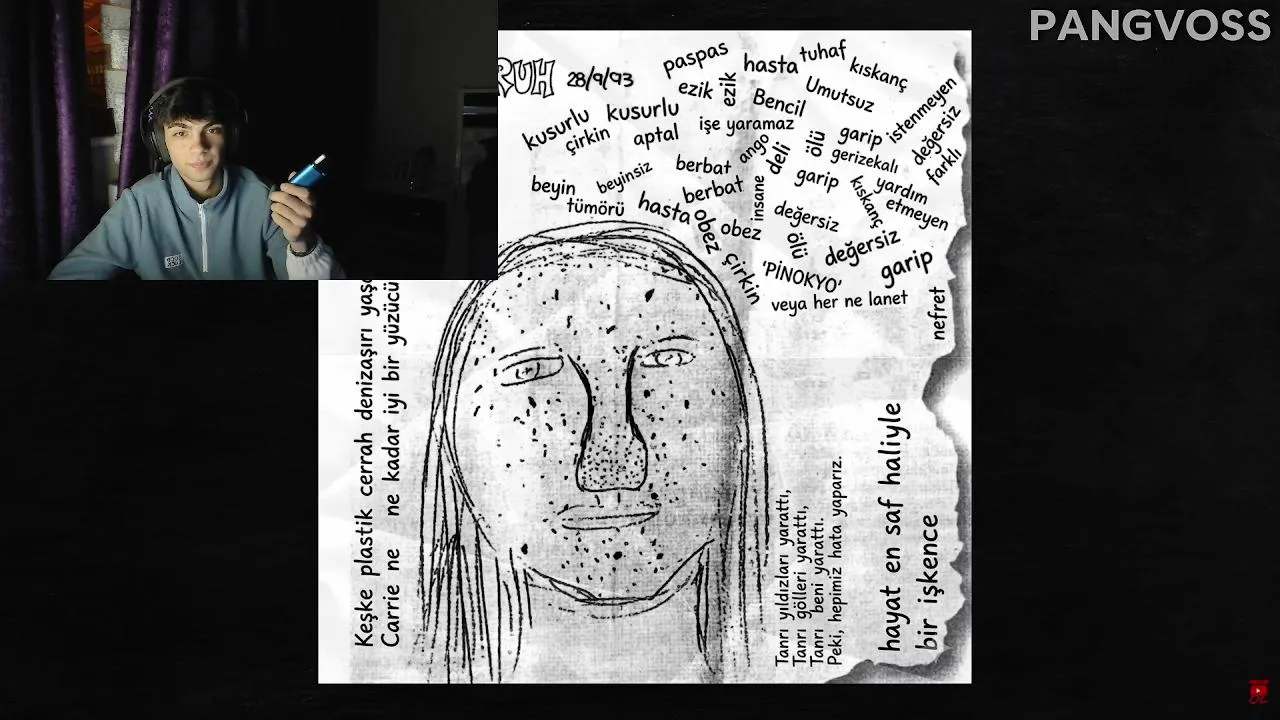 PANGVOSS
RUH 28/9/93
paspas
hasta
tuhaf
kıskanç
ezik
ezik
Bencil
Umutsuz
istenmeyen
kusurlu
kusurlu
çirkin
aptal
işe yaramaz
ölü
garip
değersiz
farklı
beyin
tümörü
beyinsiz
berbat
berbat
ango
deli
gerizekalı
garip
kıskanç
yardım
etmeyen
hasta
obez
obez
insane
değersiz
ölü
değersiz
garip
çirkin
'PİNOKYO'
veya her ne lanet
nefret
Keşke plastik cerrah denizaşırı yaşa
Carrie ne ne kadar iyi bir yüzücü
Tanrı yıldızları yarattı,
Tanrı gölleri yarattı,
Tanrı beni yarattı.
Peki, hepimiz hata yaparız.
hayat en saf haliyle
bir işkence